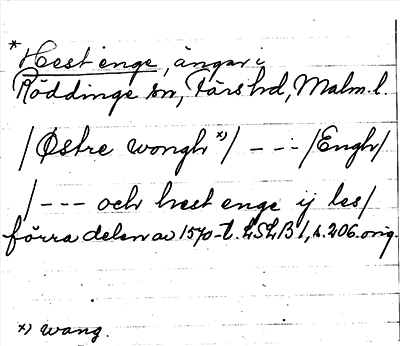 * Hest enge, ängar i
Röddinge sn, Färs hd, Malm. l.
/Østre wongh *)/ - - - /Engh/
/- - - och hest enge ij les/
förra delen av 1570-t. LSLB 1, s. 206. orig.
*) wang.